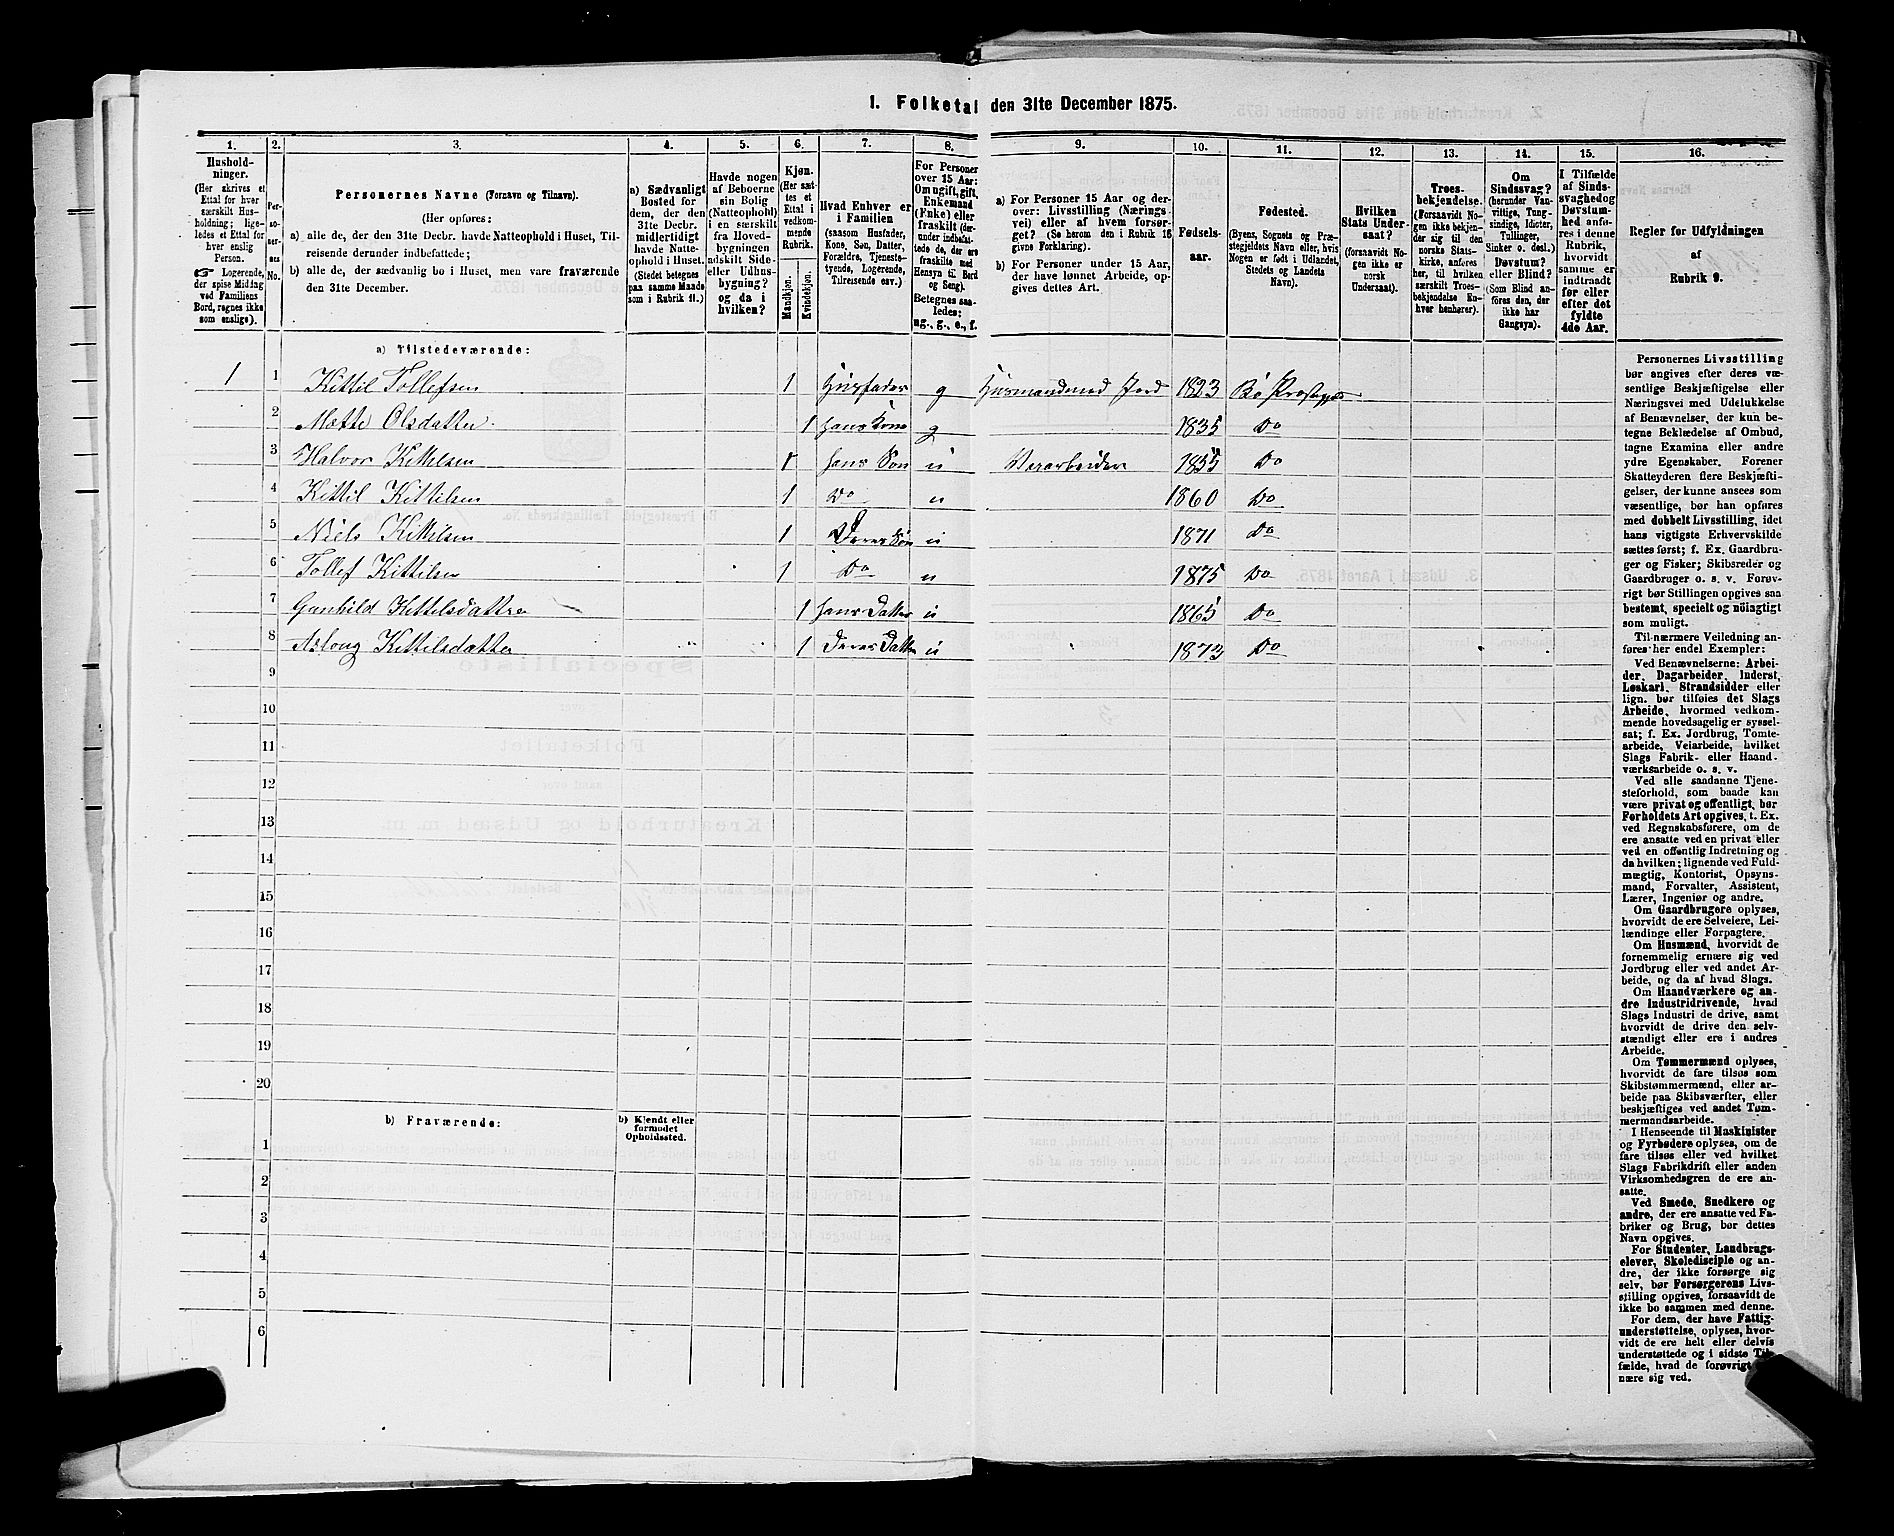 1. Folketal den 31te December 1875.
1.
2.
3.
4.
5.
6.
7.
8.
9.
10.
11.
12.
13.
14.
15.
16.
Hushold-
ninger.
(Her skrives et
Ettal for hver
særskilt Hus-
holdning; lige-
ledes et Ettal for
hver enslig
Person.
☞ Logerende,
der spise Middag
ved Familiens
Bord, regnes ikke
som enslige).
Per-
so-
ner-
nes
No.
Personernes Navne (Fornavn og Tilnavn).
(Her opføres:
a) alle de, der den 31te Decbr. havde Natteophold i Huset, Til-
reisende derunder indbefattede;
b) alle de, der sædvanlig bo i Huset, men vare fraværende
den 31te December.
a) Sædvanligt
Bosted for
dem, der den
31te Decbr.
midlertidigt
havde Natte-
ophold i Huset.
(Stedet betegnes
paa samme Maade
som i Rubrik 11.)
Havde nogen
af Beboerne
sin Bolig
(Natteophold)
i en særskilt
fra Hoved-
bygningen
adskilt Side-
eller Udhus-
bygning?
og da i
hvilken?
Kjøn.
(Her sæt-
tes et
Ettal i
vedkom-
mende
Rubrik.
Mandkjøn.
Kvindekjøn.
Hvad Enhver er
i Familien
(saasom Husfader,
Kone, Søn, Datter,
Forældre, Tjeneste-
tyende, Logerende,
Tilreisende osv.)
For Personer
over 15 Aar:
Om ugift, gift,
Enkemand
(Enke) eller
fraskilt (der-
under indbefat-
tede de, der ere
fraskilte med
Hensyn til Bord
og Seng).
Betegnes saa-
ledes:
ug., g., e., f.
a) For Personer 15 Aar og der-
over: Livsstilling (Nærings-
vei) eller af hvem forsør-
get? (Se herom den i Rubrik 16
givne Forklaring).
b) For Personer under 15 Aar,
der have lønnet Arbeide, op-
gives dettes Art.
Fødsels-
aar.
Fødested.
(Byens, Sognets og Præ-
stegjeldets Navn eller, hvis
Nogen er født i Udlandet,
Stedets og Landets
Navn).
Hvilken
Stats Under-
saat?
(forsaavidt No-
gen ikke er
norsk
Undersaat).
Troes-
bekjendelse.
(Forsaavidt No-
gen ikke bekjen-
der sig til den
norske Stats-
kirke, anføres
her, til hvilken
særskilt Troes-
bekjendelse En-
hver henhører).
Om
Sindssvag?
(herunder Van-
vittige, Tung-
sindige, Idioter,
Tullinger,
Sinker o. desl.)
Døvstum?
eller Blind?
(Som Blind an-
føres den, der
ikke har
Gangsyn).
I Tilfælde
af Sinds-
svaghed og
Døvstum-
hed anfø-
res i denne
Rubrik,
hvorvidt
samme er
indtraadt
før eller
efter det
fyldte
4de Aar.
Regler for Udfyldningen
af
Rubrik 9.
a) Tilstedeværende:
1 1 Kittil Tollefsen 1 Husfader g Husmand med Jord 1823 Bø Præstegj
2 Mætte Olsdatter 1 hans Kone g 1835 Do
3 Halvor Kittilsen 1 hans Søn u 1855 Do
4 Kittil Kittilsen 1 Do u 1860 Do
5 Niels Kittilsen 1 Deres Søn u 1871 Do
6 Tollef Kittilsen 1 Do u 1875 Do
7 Gunhild Kittilsdatter 1 hans Datter u 1865 Do
8 Asloug Kittilsdatter 1 Deres Datter u 1873 Do
9
10
11
12
13
14
15
16
17
18
19
20
b) Fraværende:
b) Kjendt eller
formodet
Opholdssted.
1
2
3
4
5
6
Personernes Livsstilling
bør angives efter deres væ-
sentlige Beskjæftigelse eller
Næringsvei med Udelukkelse
af Benævnelser, der kun be-
tegne Beklædelse af Ombud,
tagne Examina eller andre
ydre Egenskaber. Forener
Skatteyderen flere Beskjæfti-
gelser, der kunne ansees som
væsentlige, bør han opføres
med dobbelt Livsstilling, idet
hans vigtigste Erhvervskilde
sættes først; f. Ex. Gaardbru-
ger og Fisker; Skibsreder og
Gaardbruger o. s. v. Forøv-
rigt bør Stillingen opgives saa
bestemt, specielt og nøiagtigt
som muligt.
Til nærmere Veiledning an-
føres her endel Exempler:
Ved Benævnelserne: Arbei-
der, Dagarbeider, Inderst,
Løskarl, Strandsidder eller
lign. bør tilføies det Slags
Arbeide, hvormed vedkom-
mende hovedsagelig er syssel-
sat; f. Ex. Jordbrug, Tomte-
arbeide, Veiarbeide, hvilket
Slags Fabrik- eller Haand-
værksarbeide o. s. v.
Ved alle saadanne Tjene-
steforhold, som baade kan
være privat og offentligt, bør
Forholdets Art opgives, t. Ex.
ved Regnskabsførere, om de
ere ansatte ved en privat eller
ved en offentlig Indretning og
da hvilken; lignende ved Fuld-
mægtig, Kontorist, Opsyns-
mand, Forvalter, Assistent,
Lærer, Ingeniør og andre.
Om Gaardbrugere oplyses,
hvorvidt de ere Selveiere, Lei-
lændinge eller Forpagtere.
Om Husmænd, hvorvidt de
fornemmelig ernære sig ved
Jordbrug eller ved andet Ar-
beide, og da af hvad Slags.
Om Haandværkere og an-
dre Industridrivende, hvad
Slags Industri de drive, samt
hvorvidt de drive den selv-
stændigt eller ere i andres
Arbeide.
Om Tømmermænd oplyses,
hvorvidt de fare tilsøs som
Skibstømmermænd, eller ar-
beide paa Skibsværfter, eller
beskjæftiges ved andet Tøm-
mermandsarbeide.
I Henseende til Maskinister
og Fyrbødere oplyses, om de
fare tilsøs eller ved hvilket
Slags Fabrikdrift eller anden
Virksomhedsgren de ere an-
satte.
Ved Smede, Snedkere og
andre, der ere ansatte ved Fa-
briker og Brug, bør dettes
Navn opgives.
For Studenter, Landbrugs-
elever, Skoledisciple og an-
dre, der ikke forsørge sig
selv, bør Forsørgerens Livs-
stilling opgives, forsaavidt de
ikke bo sammen med denne.
For dem, der have Fattig-
understøttelse, oplyses, hvor-
vidt de ere helt eller delvis
understøttede og i sidste Til-
fælde, hvad de forøvrigt
nære sig ved.